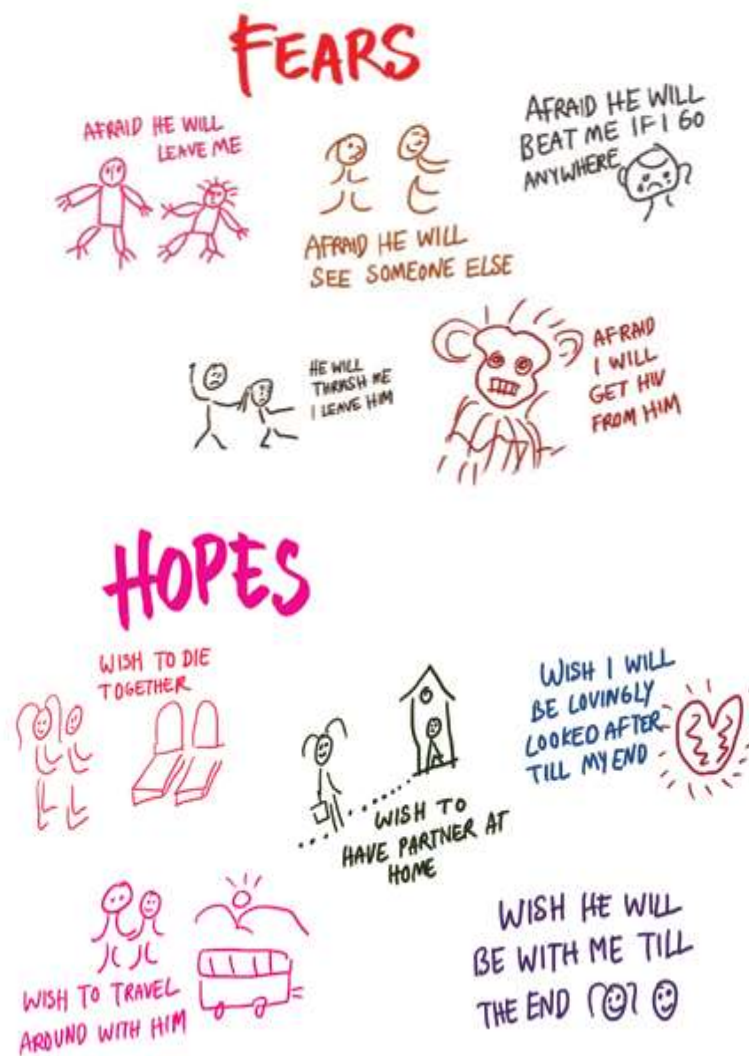 FEARS
AFRAID HE WILL
LEAVE ME
AFRAID HE WILL
SEE SOMEONE ELSE
AFRAID HE WILL
BEAT ME IF I GO
ANYWHERE
HE WILL
THRASH ME
I LEAVE HIM
AFRAID
I WILL
GET HIV
FROM HIM
HOPES
WISH TO DIE
TOGETHER
WISH TO
HAVE PARTNER AT
HOME
WISH I WILL
BE LOVINGLY
LOOKED AFTER
TILL MY END
WISH TO TRAVEL
AROUND WITH HIM
WISH HE WILL
BE WITH ME TILL
THE END